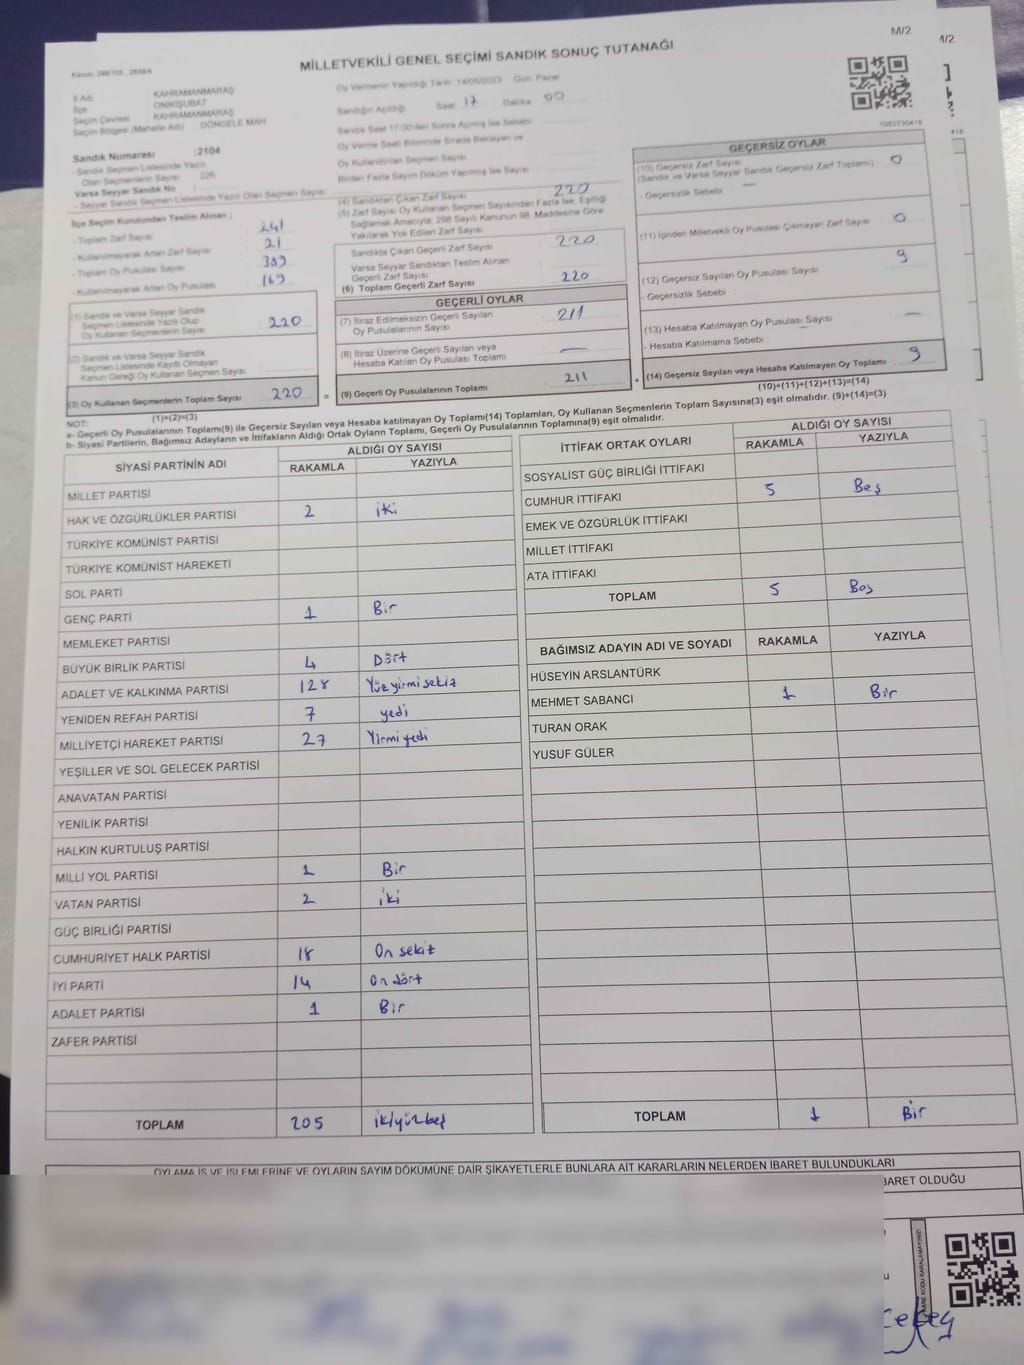 M/2
M/2
MİLLETVEKİLİ GENEL SEÇİMİ SANDIK SONUÇ TUTANAĞI
Kanun: 298/105 , 2839/4
İl Adı : KAHRAMANMARAŞ
İlçe : ONİKİŞUBAT
Seçim Çevresi : KAHRAMANMARAŞ
Seçim Bölgesi (Mahalle Adı) : DÖNGELE MAH
Sandık Numarası :2104
- Sandık Seçmen Listesinde Yazılı
Olan Seçmenlerin Sayısı : 226
Varsa Seyyar Sandık No :
- Seyyar Sandık Seçmen Listesinde Yazılı Olan Seçmen Sayısı :
İlçe Seçim Kurulundan Teslim Alınan ;
- Toplam Zarf Sayısı : 241
- Kullanılmayarak Artan Zarf Sayısı : 21
- Toplam Oy Pusulası Sayısı : 389
- Kullanılmayarak Artan Oy Pusulası : 169
(1) Sandık ve Varsa Seyyar Sandık
Seçmen Listesinde Yazılı Olup
Oy Kullanan Seçmenlerin Sayısı : 220
(2) Sandık ve Varsa Seyyar Sandık
Seçmen Listesinde Kayıtlı Olmayan
Kanun Gereği Oy Kullanan Seçmen Sayısı :
(3) Oy Kullanan Seçmenlerin Toplam Sayısı : 220
(1)+(2)=(3)
Oy Vermenin Yapıldığı Tarih :14/05/2023 Gün: Pazar
Sandığın Açıldığı Saat 17 Dakika 00
Sandık Saat 17.00'den Sonra Açılmış İse Sebebi :
Oy Verme Saati Bitiminde Sırada Bekleyen ve
Oy Kullandırılan Seçmen Sayısı :
Birden Fazla Sayım Döküm Yapılmış İse Sayısı :
(4) Sandıktan Çıkan Zarf Sayısı : 220
(5) Zarf Sayısı Oy Kullanan Seçmen Sayısından Fazla İse, Eşitliği
Sağlamak Amacıyla, 298 Sayılı Kanunun 98. Maddesine Göre
Yakılarak Yok Edilen Zarf Sayısı :
Sandıkta Çıkan Geçerli Zarf Sayısı : 220
Varsa Seyyar Sandıktan Teslim Alınan
Geçerli Zarf Sayısı :
(6) Toplam Geçerli Zarf Sayısı : 220
GEÇERLİ OYLAR
(7) İtiraz Edilmeksizin Geçerli Sayılan
Oy Pusulalarının Sayısı : 211
(8) İtiraz Üzerine Geçerli Sayılan veya
Hesaba Katılan Oy Pusulası Toplamı : —
= (9) Geçerli Oy Pusulalarının Toplamı : 211
1083730418
418
GEÇERSİZ OYLAR
(10) Geçersiz Zarf Sayısı
(Sandık ve Varsa Seyyar Sandık Geçersiz Zarf Toplamı) : 0
- Geçersizlik Sebebi : —
(11) İçinden Milletvekili Oy Pusulası Çıkmayan Zarf Sayısı : 0
(12) Geçersiz Sayılan Oy Pusulası Sayısı : 9
- Geçersizlik Sebebi :
(13) Hesaba Katılmayan Oy Pusulası Sayısı : —
- Hesaba Katılmama Sebebi :
+ (14) Geçersiz Sayılan veya Hesaba Katılmayan Oy Toplamı : 9
(10)+(11)+(12)+(13)=(14)
NOT:
a- Geçerli Oy Pusulalarının Toplamı(9) ile Geçersiz Sayılan veya Hesaba katılmayan Oy Toplamı(14) Toplamları, Oy Kullanan Seçmenlerin Toplam Sayısına(3) eşit olmalıdır. (9)+(14)=(3)
b- Siyasi Partilerin, Bağımsız Adayların ve İttifakların Aldığı Ortak Oyların Toplamı, Geçerli Oy Pusulalarının Toplamına(9) eşit olmalıdır.
SİYASİ PARTİNİN ADI ALDIĞI OY SAYISI
RAKAMLA YAZIYLA
MİLLET PARTİSİ
HAK VE ÖZGÜRLÜKLER PARTİSİ 2 iki
TÜRKİYE KOMÜNİST PARTİSİ
TÜRKİYE KOMÜNİST HAREKETİ
SOL PARTİ
GENÇ PARTİ 1 Bir
MEMLEKET PARTİSİ
BÜYÜK BİRLİK PARTİSİ 4 Dört
ADALET VE KALKINMA PARTİSİ 128 Yüzyirmisekiz
YENİDEN REFAH PARTİSİ 7 yedi
MİLLİYETÇİ HAREKET PARTİSİ 27 Yirmiyedi
YEŞİLLER VE SOL GELECEK PARTİSİ
ANAVATAN PARTİSİ
YENİLİK PARTİSİ
HALKIN KURTULUŞ PARTİSİ
MİLLİ YOL PARTİSİ 1 Bir
VATAN PARTİSİ 2 iki
GÜÇ BİRLİĞİ PARTİSİ
CUMHURİYET HALK PARTİSİ 18 On sekiz
İYİ PARTİ 14 On dört
ADALET PARTİSİ 1 Bir
ZAFER PARTİSİ
TOPLAM 205 ikiyüzbeş
İTTİFAK ORTAK OYLARI ALDIĞI OY SAYISI
RAKAMLA YAZIYLA
SOSYALİST GÜÇ BİRLİĞİ İTTİFAKI
CUMHUR İTTİFAKI 5 Beş
EMEK VE ÖZGÜRLÜK İTTİFAKI
MİLLET İTTİFAKI
ATA İTTİFAKI
TOPLAM 5 Beş
BAĞIMSIZ ADAYIN ADI VE SOYADI RAKAMLA YAZIYLA
HÜSEYİN ARSLANTÜRK
MEHMET SABANCI 1 Bir
TURAN ORAK
YUSUF GÜLER
TOPLAM 1 Bir
OYLAMA İŞ VE İŞLEMLERİNE VE OYLARIN SAYIM DÖKÜMÜNE DAİR ŞİKAYETLERLE BUNLARA AİT KARARLARIN NELERDEN İBARET BULUNDUKLARI
BARET OLDUĞU